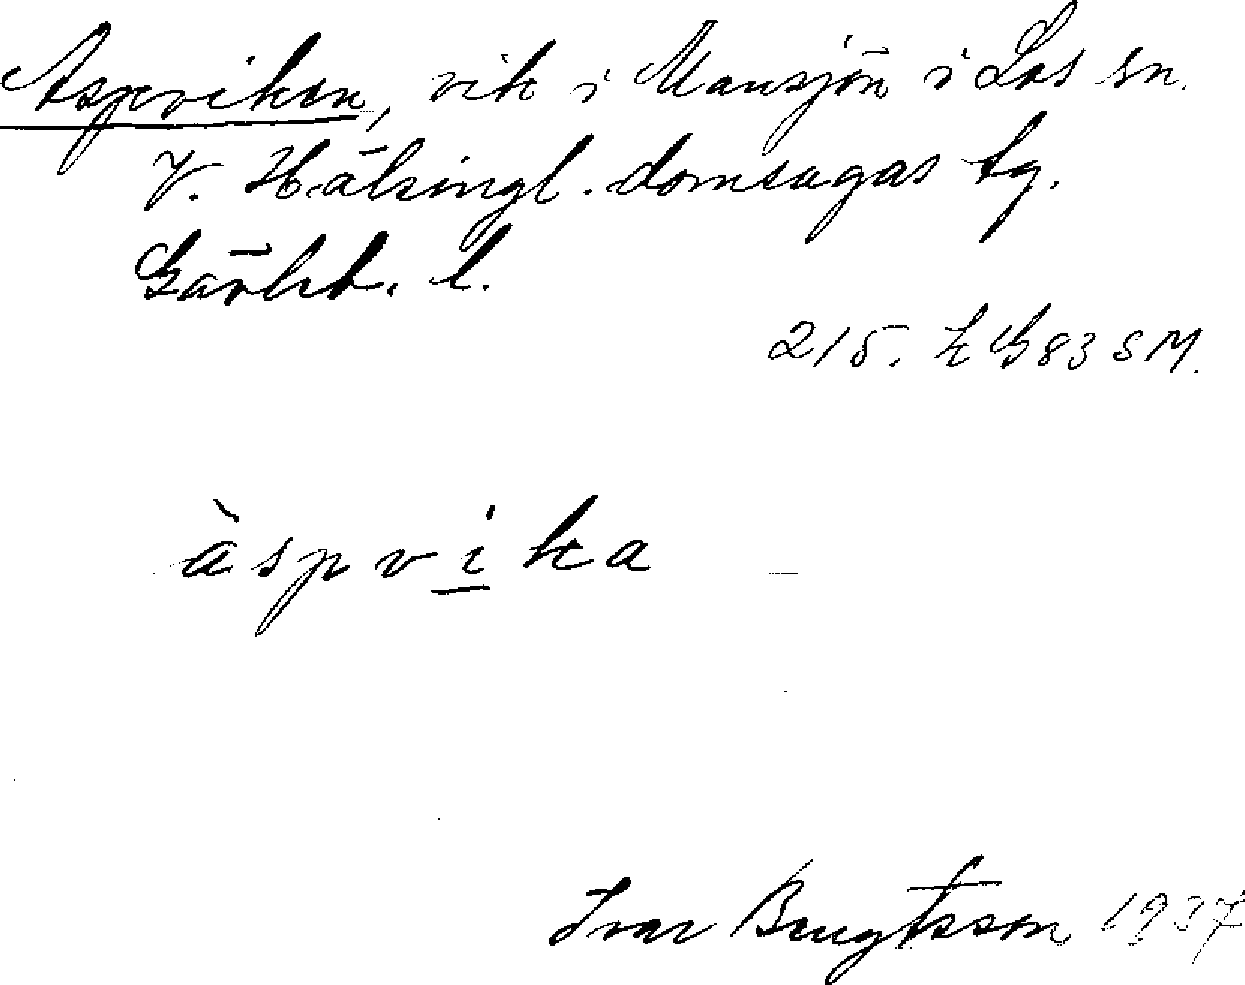 Aspviken, vik i Mansjön i Los sn.
V. Hälsingl. domsagas tg.
Gävleb. l.
215. k G 83 S M.
àspvika
Ivar Bengtsson 1937